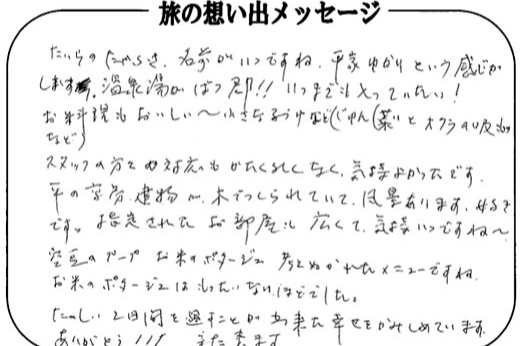 旅の想い出メッセージ
たいらの 名前がいいですね。平家ゆかりという感じが
します。温泉湯がばつ郡!! いつまでも入っていたい!
お料理もおいしい〜 小さな など(じゅんさいとオクラの
など)
スタッフの方々の対応もかたくるしくなく、気持よかったです。
平の家 建物が、木でつくられていて、風景あります。好き
です。指定されたお部屋も広くて、気持いいですね〜
空豆のスープ お米のポタージュ 考えぬかれたメニューですね。
お米のポタージュはもったいないほどでした。
たのしい2日間を過すことが出来た幸せをかみしめています。
ありがとう!!! また来ます